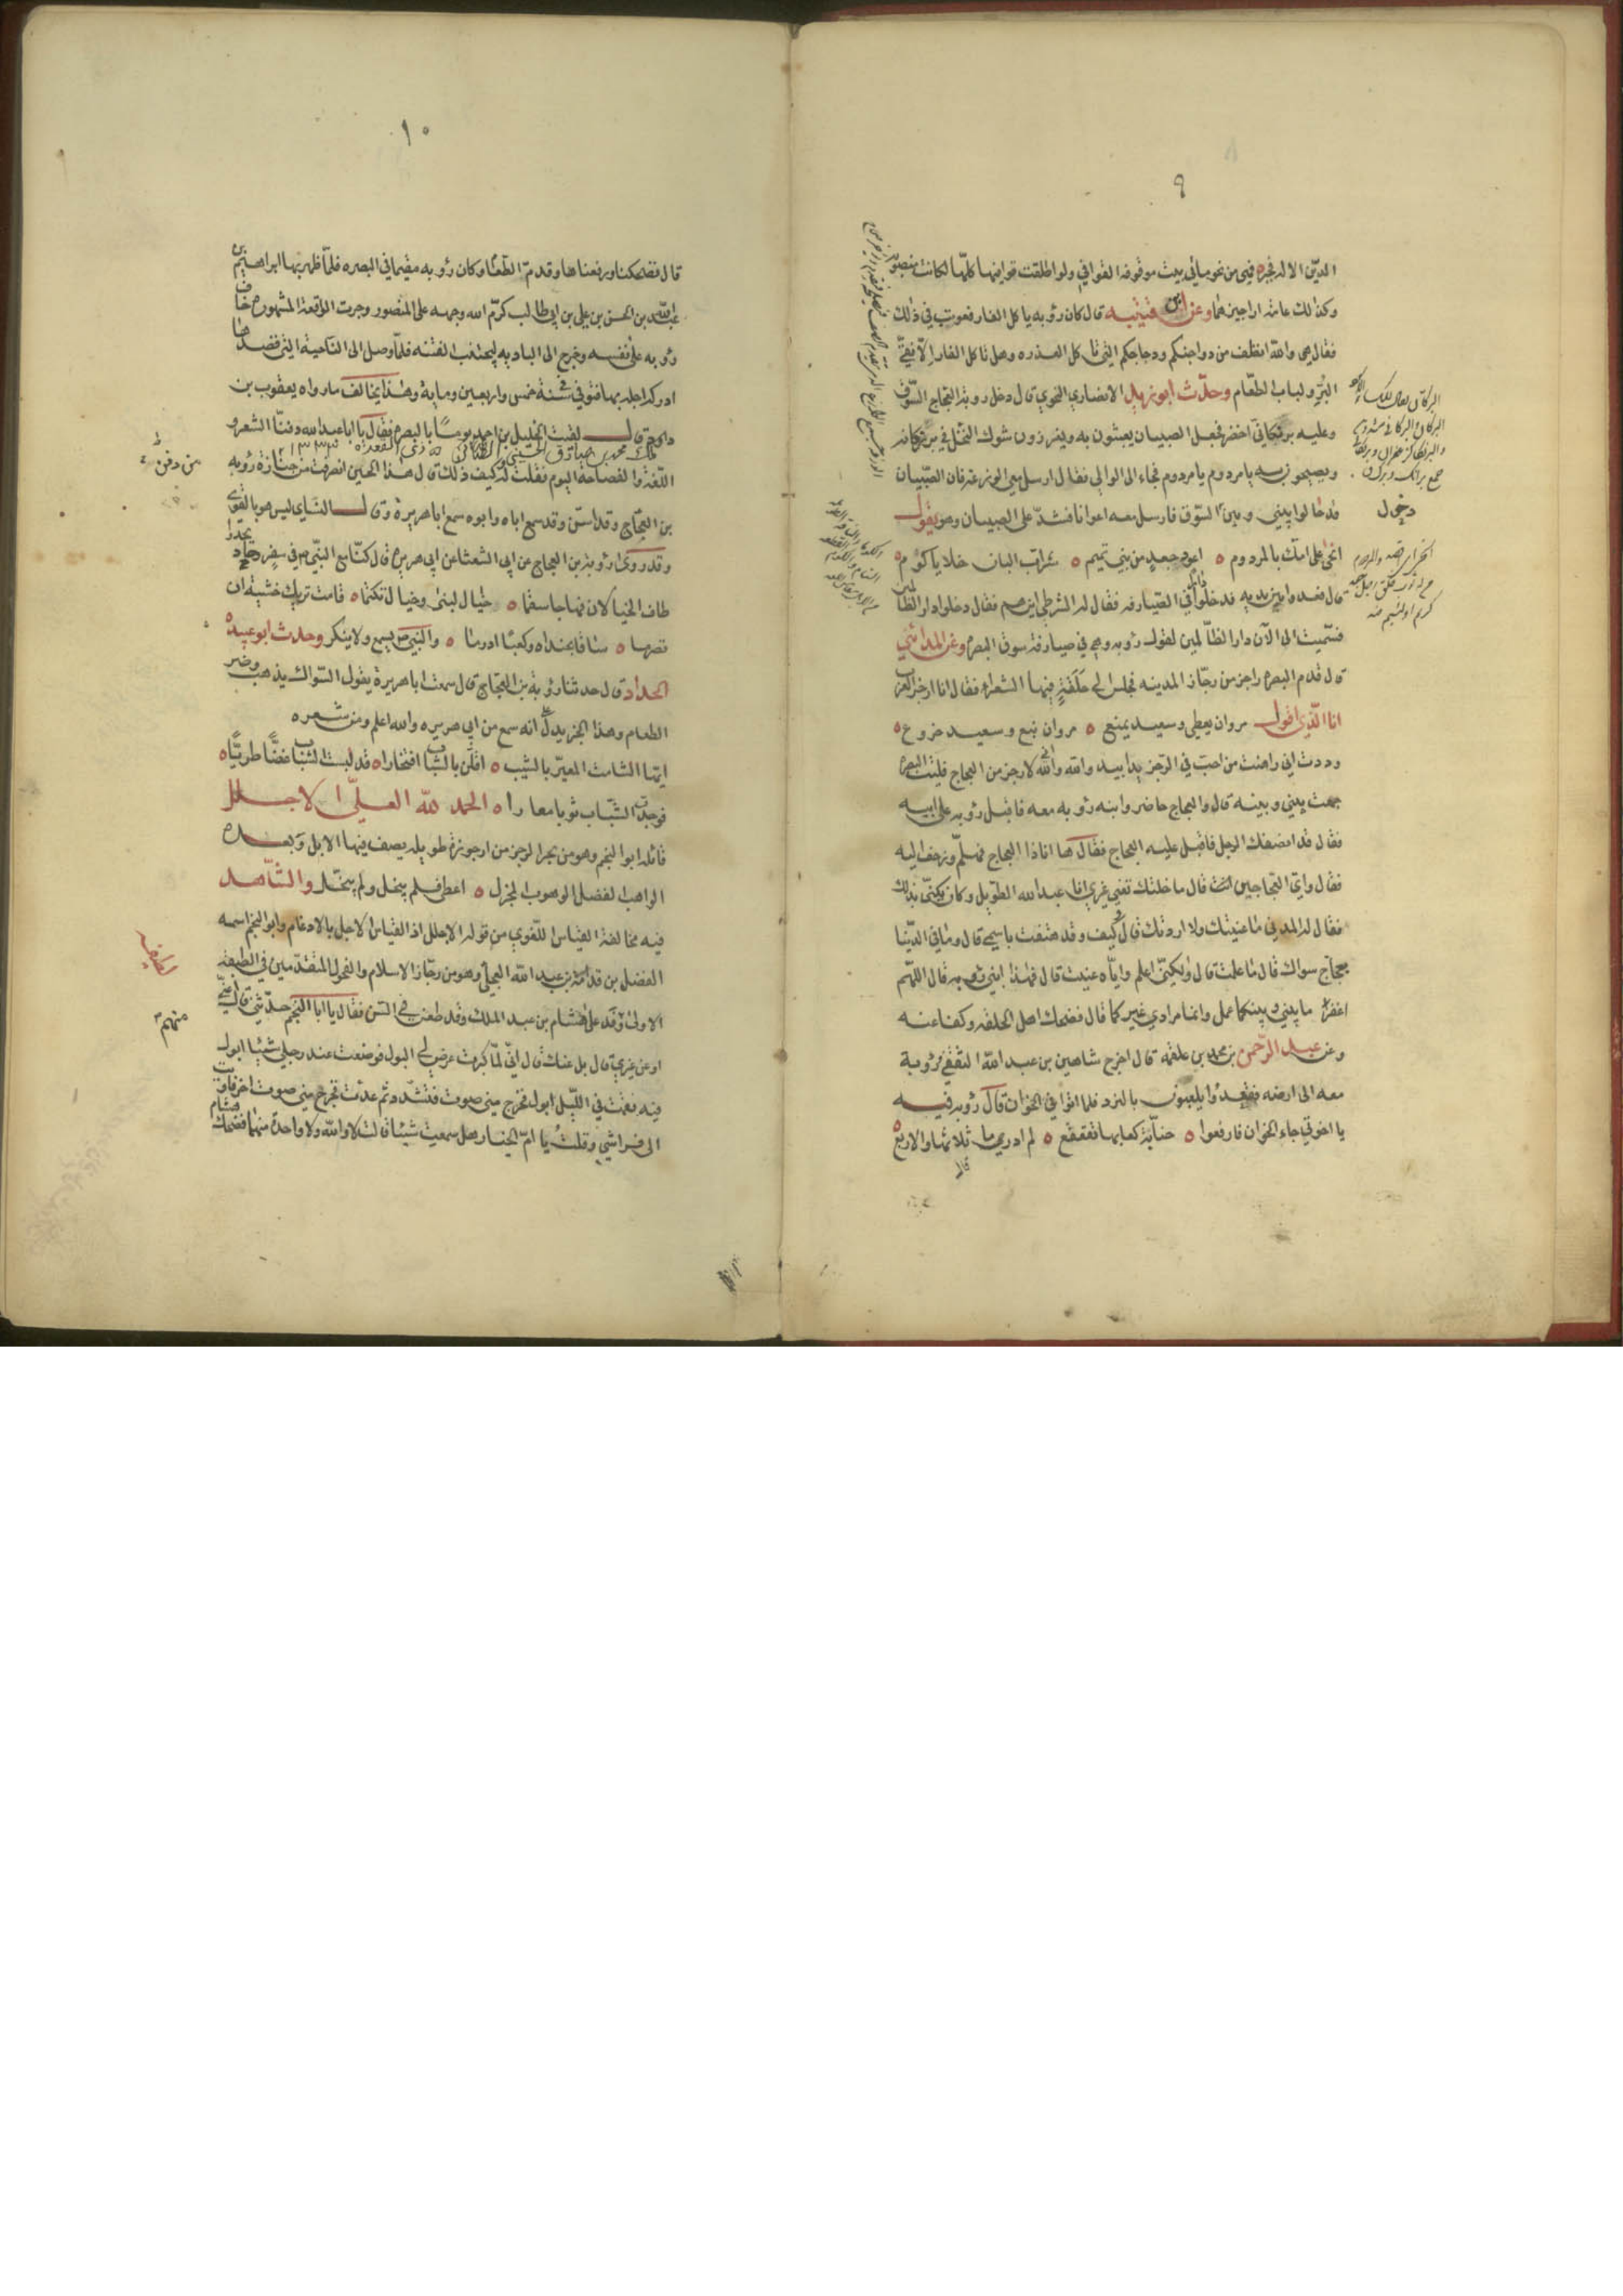 ٩
الدين الاله فجبر فهى من نحو مائى بيت موقوفة القوافي ولو اطلقت قوافيها كلها لكانت منصوبة
وكذلك عامة اراجيزهما وعن ابن قتيبه قال كان رؤبه ياكل الفار فعوتب في ذلك
فقال هى والله انظف من دواجنكم ودجاجكم التي تاكل العذره وهل تاكل الفار الا نقي
البر ولباب الطعام وحدث ابو زيد الانصاري النحوي قال دخل روبة بن العجاج السوق
وعليه برنكاني اخضر فجعل الصبيان يعبثون به ويغرزون شوك النخل في برنكانه
ويصيحون به يا مردوم يا مردوم فجاء الى الوالي فقال ارسل معي الوزعة فان الصبيان
قد حالوا بيني وبين السوق فارسل معه اعوانا فشد على الصبيان وهو يقول
انحى على امك بالمردوم ٥ اعور جعد من بني تميم ٥ شراب البان خلايا كوم ٥
قال فعدوا بين يديه فدخلوا في الصيارفه فقال له الشرطي اين هم فقال دخلوا دار الظالمين
فسميت الى الآن دار الظالمين لقول رؤبه وهي في صيارفة سوق البصرة وعن المدائني
قال قدم البصرة راجز من رجاز المدينه فجلس الى حلقة فيها الشعراء فقال انا ارجز العرب
انا الذي اقول مروان يعطى وسعيد يمنع ٥ مروان نبع وسعيد خروع ٥
وددت اني راهنت من احب في الرجز يدا بيد والله اني والله لارجز من العجاج فليت البصرة
جمعت بيني وبينه قال والعجاج حاضر وابنه رؤبه معه فاقبل رؤبه على ابيه
فقال قد انصفك الرجل فاقبل عليه العجاج فقال ها انا ذا العجاج فهلم وزحف اليه
فقال واي العجاجين انت قال ما خلتك تعني غيري انا عبد الله الطويل وكان يكنى بذلك
فقال له المدني ما عنيتك ولا اردتك قال وكيف وقد هتفت باسمي قال وما في الدنيا
عجاج سواك قال ما علمت قال ولكني اعلم واياه عنيت قال فهذا ابني رؤبه قال اللهم
اغفر ما بيني وبينكما عمل وانما مرادي غير كما قال فضحك اهل الحلقه وكفا عنه
وعن عبد الرحمن بن محمد بن علقمه قال اخرج شاهين بن عبد الله الثقفي رؤبة
معه الى ارضه فقعدوا يلعبون بالنرد فلما اتوا في الخوان قال رؤبه فيه
يا اخوتي جاء الخوان فارفعوا ٥ حنانة كعابها تقعقع ٥ لم ادري ما ثلاثها والاربع ٥
قال
دخول
١٠
قال فضحكنا ورفعناها وقدم الطعام وكان رؤبه مقيما في البصره فلما ظهر بها ابراهيم بن
عبد الله بن الحسن بن علي بن ابي طالب كرم الله وجهه على المنصور وجرت الواقعة المشهورة خاف
رؤبه على نفسه وخرج الى الباديه ليجتنب الفتنه فلما وصل الى الناحية التي قصدها
ادركه اجله بها فتوفي سنة خمس واربعين ومايه وهذا يخالف ما رواه يعقوب بن
داود قال لقيت الخليل بن احمد يوما بالبصرة فقال يا ابا عبد الله دفنا الشعر و
اللغة والفصاحة اليوم فقلت له كيف ذلك قال هذا الحين انصرفت من جنازة رؤبه
بن العجاج وقد اسن وقد سمع اباه وابوه سمع ابا هريرة وقال النساي ليس هو بالقوي
وقد روى رؤبة بن العجاج عن ابي الشعثا عن ابي هريرة قال كنا مع النبي ص في سفر وحاد يحدوا
طاف الخيالان فهاجا سقما ٥ خيال لبنى وخيال تكتما ٥ قامت تريك خشية ان
تصرما ٥ ساقا بخنداه وكعبا ادرما ٥ والنبي ص يسمع ولا ينكر وحدث ابو عبيده
الحداد قال حدثنا رؤبة بن العجاج قال سمعت ابا هريرة يقول السواك يذهب وضر
الطعام وهذا الخبر يدل على انه سمع من ابي هريره والله اعلم ومن شعره
ايها الشامت المعير بالشيب ٥ اقلن بالشباب افتخارا ٥ قد لبست الشباب غضا طريا ٥
فوجدت الشباب ثوبا معارا ٥ الحمد لله العلي الاجلل
قائله ابو النجم وهو من بحر الرجز من ارجوزة طويله يصف فيها الابل وبعده
الواهب الفضل الوهوب المجزل ٥ اعطى فلم يبخل ولم يبخل والشاهد
فيه مخالفة القياس اللغوي من قوله الاجلل اذ القياس الاجل بالادغام وابو النجم اسمه
الفضل بن قدامة بن عبد الله العجلي وهو من رجاز الاسلام والفحول المتقدمين في الطبقه
الاولى وفد على هشام بن عبد الملك وقد طعن في السن فقال يا ابا النجم حدثني قال عني
او عن غيري قال بل عنك قال اني لما كبرت عرض لي البول فوضعت عند رجلي شيئا ابول
فيه فقمت في الليل ابول فخرج مني صوت فتشددت ثم عدت فخرج مني صوت اخر فاويت
الى فراشي وقلت يا ام الخيار هل سمعت شيئا قالت لا والله ولا واحدة منهما فضحك هشام
من دفن
منهم